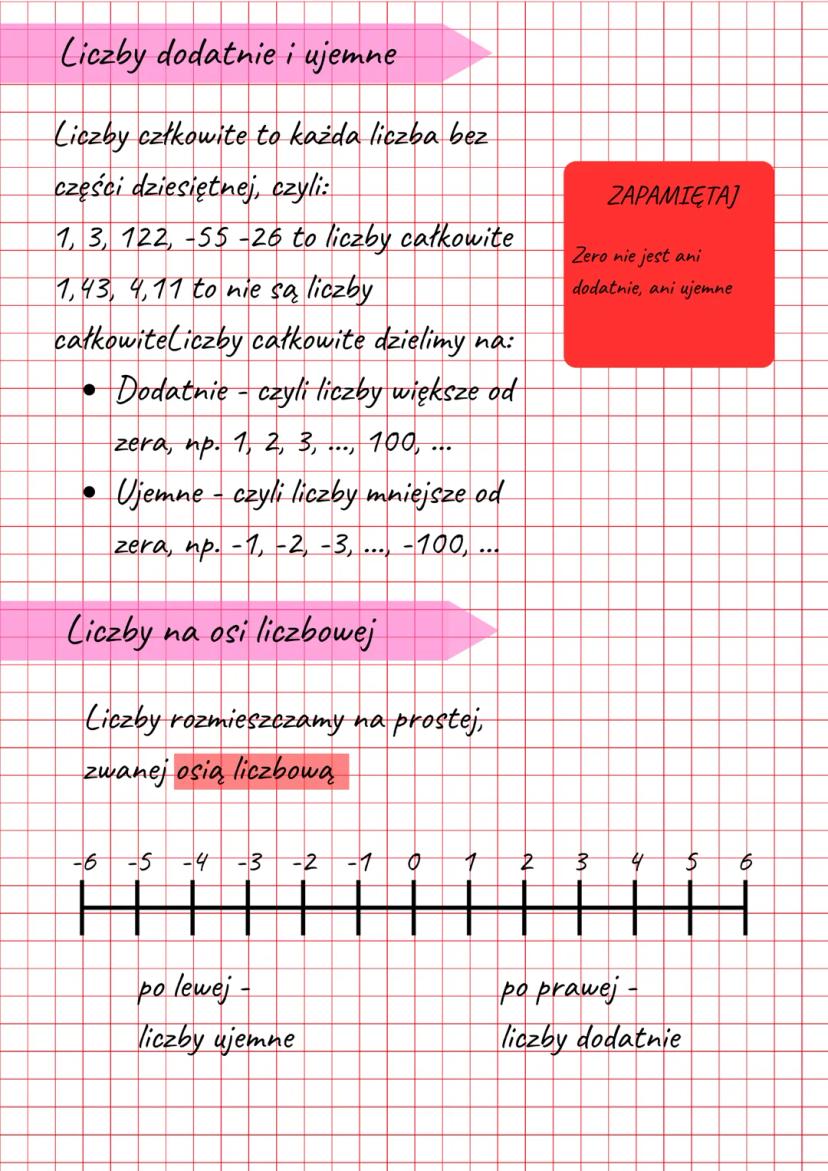 Liczby dodatnie i ujemne
Liczby człkowite to każda liczba bez
części dziesiętnej, czyli:
1, 3, 122, -55 -26 to liczby całkowite
1,43, 4,11 to nie są liczby
całkowiteLiczby całkowite dzielimy na:
• Dodatnie - czyli liczby większe od
zera, np. 1, 2, 3, ..., 100, ...
• Ujemne - czyli liczby mniejsze od
zera, np. -1, -2, -3, ..., -100, ...
ZAPAMIĘTAJ
Zero nie jest ani
dodatnie, ani ujemne
Liczby na osi liczbowej
Liczby rozmieszczamy na prostej,
zwanej osią liczbową
-6 -5 -4 -3 -2 -1 0 1 2 3 4 5 6
po lewej -
liczby ujemne
po prawej -
liczby dodatnie